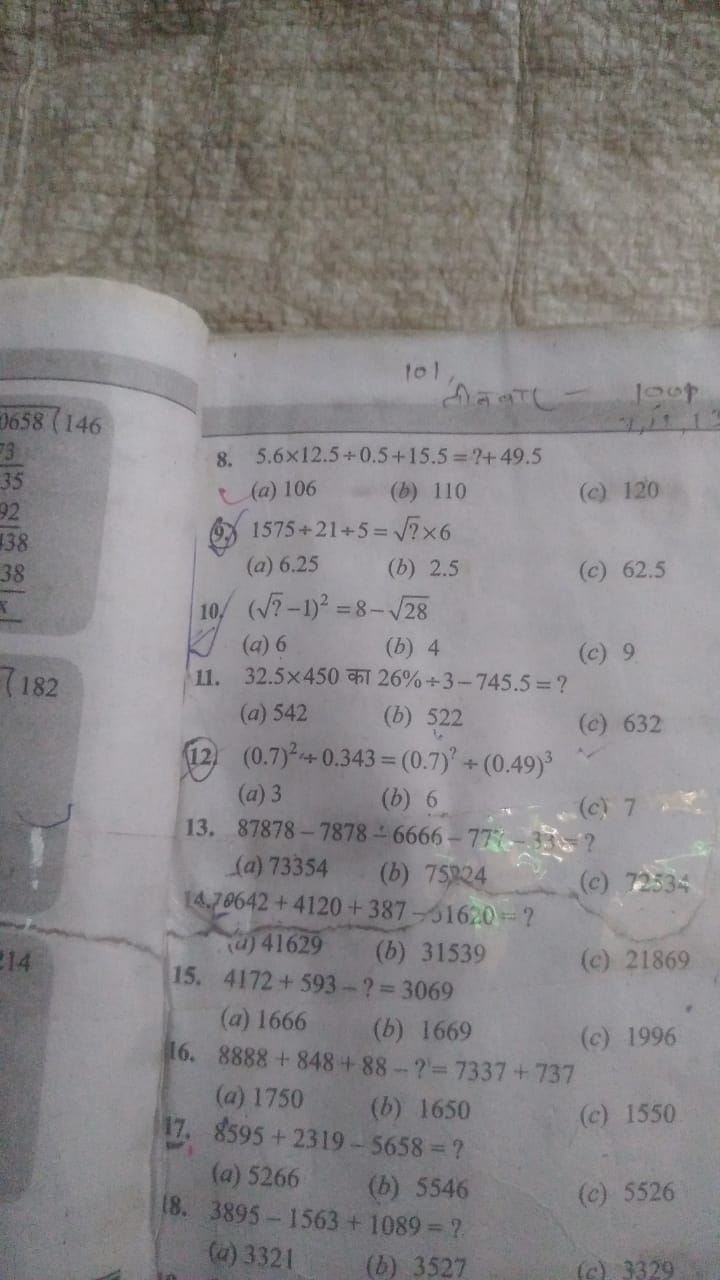 101,
0658(146
73
35
92
438
38
x
182
214
8. 5.6×12.5÷0.5+15.5=?+49.5
(a) 106 (b) 110 (c) 120
9. 1575÷21÷5=√?×6
(a) 6.25 (b) 2.5 (c) 62.5
10. (√?−1)²=8−√28
(a) 6 (b) 4 (c) 9
11. 32.5×450 का 26%÷3−745.5=?
(a) 542 (b) 522 (c) 632
12. (0.7)²÷0.343=(0.7)^?÷(0.49)³
(a) 3 (b) 6 (c) 7
13. 87878−7878−6666−777−33=?
(a) 73354 (b) (c) 72534
14. 70642+4120+387−31620=?
(a) 41629 (b) 31539 (c) 21869
15. 4172+593−?=3069
(a) 1666 (b) 1669 (c) 1996
16. 8888+848+88−?=7337+737
(a) 1750 (b) 1650 (c) 1550
17. 8595+2319−5658=?
(a) 5266 (b) 5546 (c) 5526
18. 3895−1563+1089=?
(a) 3321 (b) 3527 (c) 3329